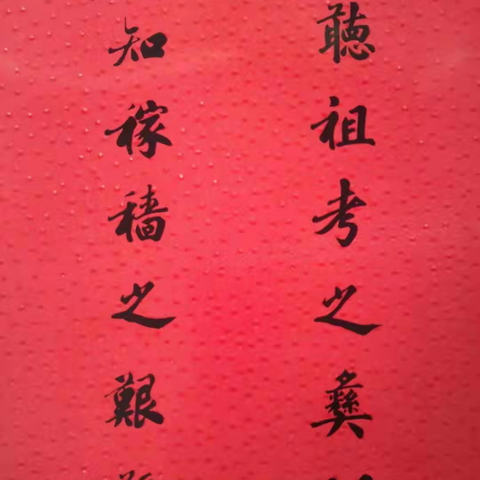 聴祖考之彝
知稼穡之艱